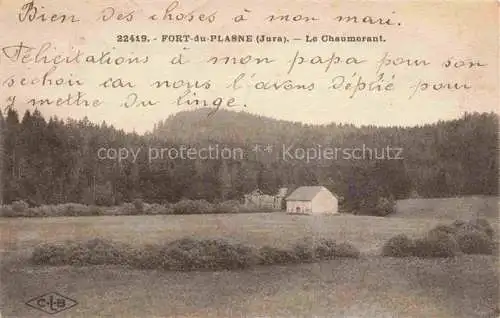 Bien des choses à mon mari.
22419. - FORT-du-PLASNE (Jura). - Le Chaumorant.
Félicitations à mon papa pour son
sechoir car nous l'avons déplié pour
y mettre du linge.
copyright protection ** Kopierschutz
CLB